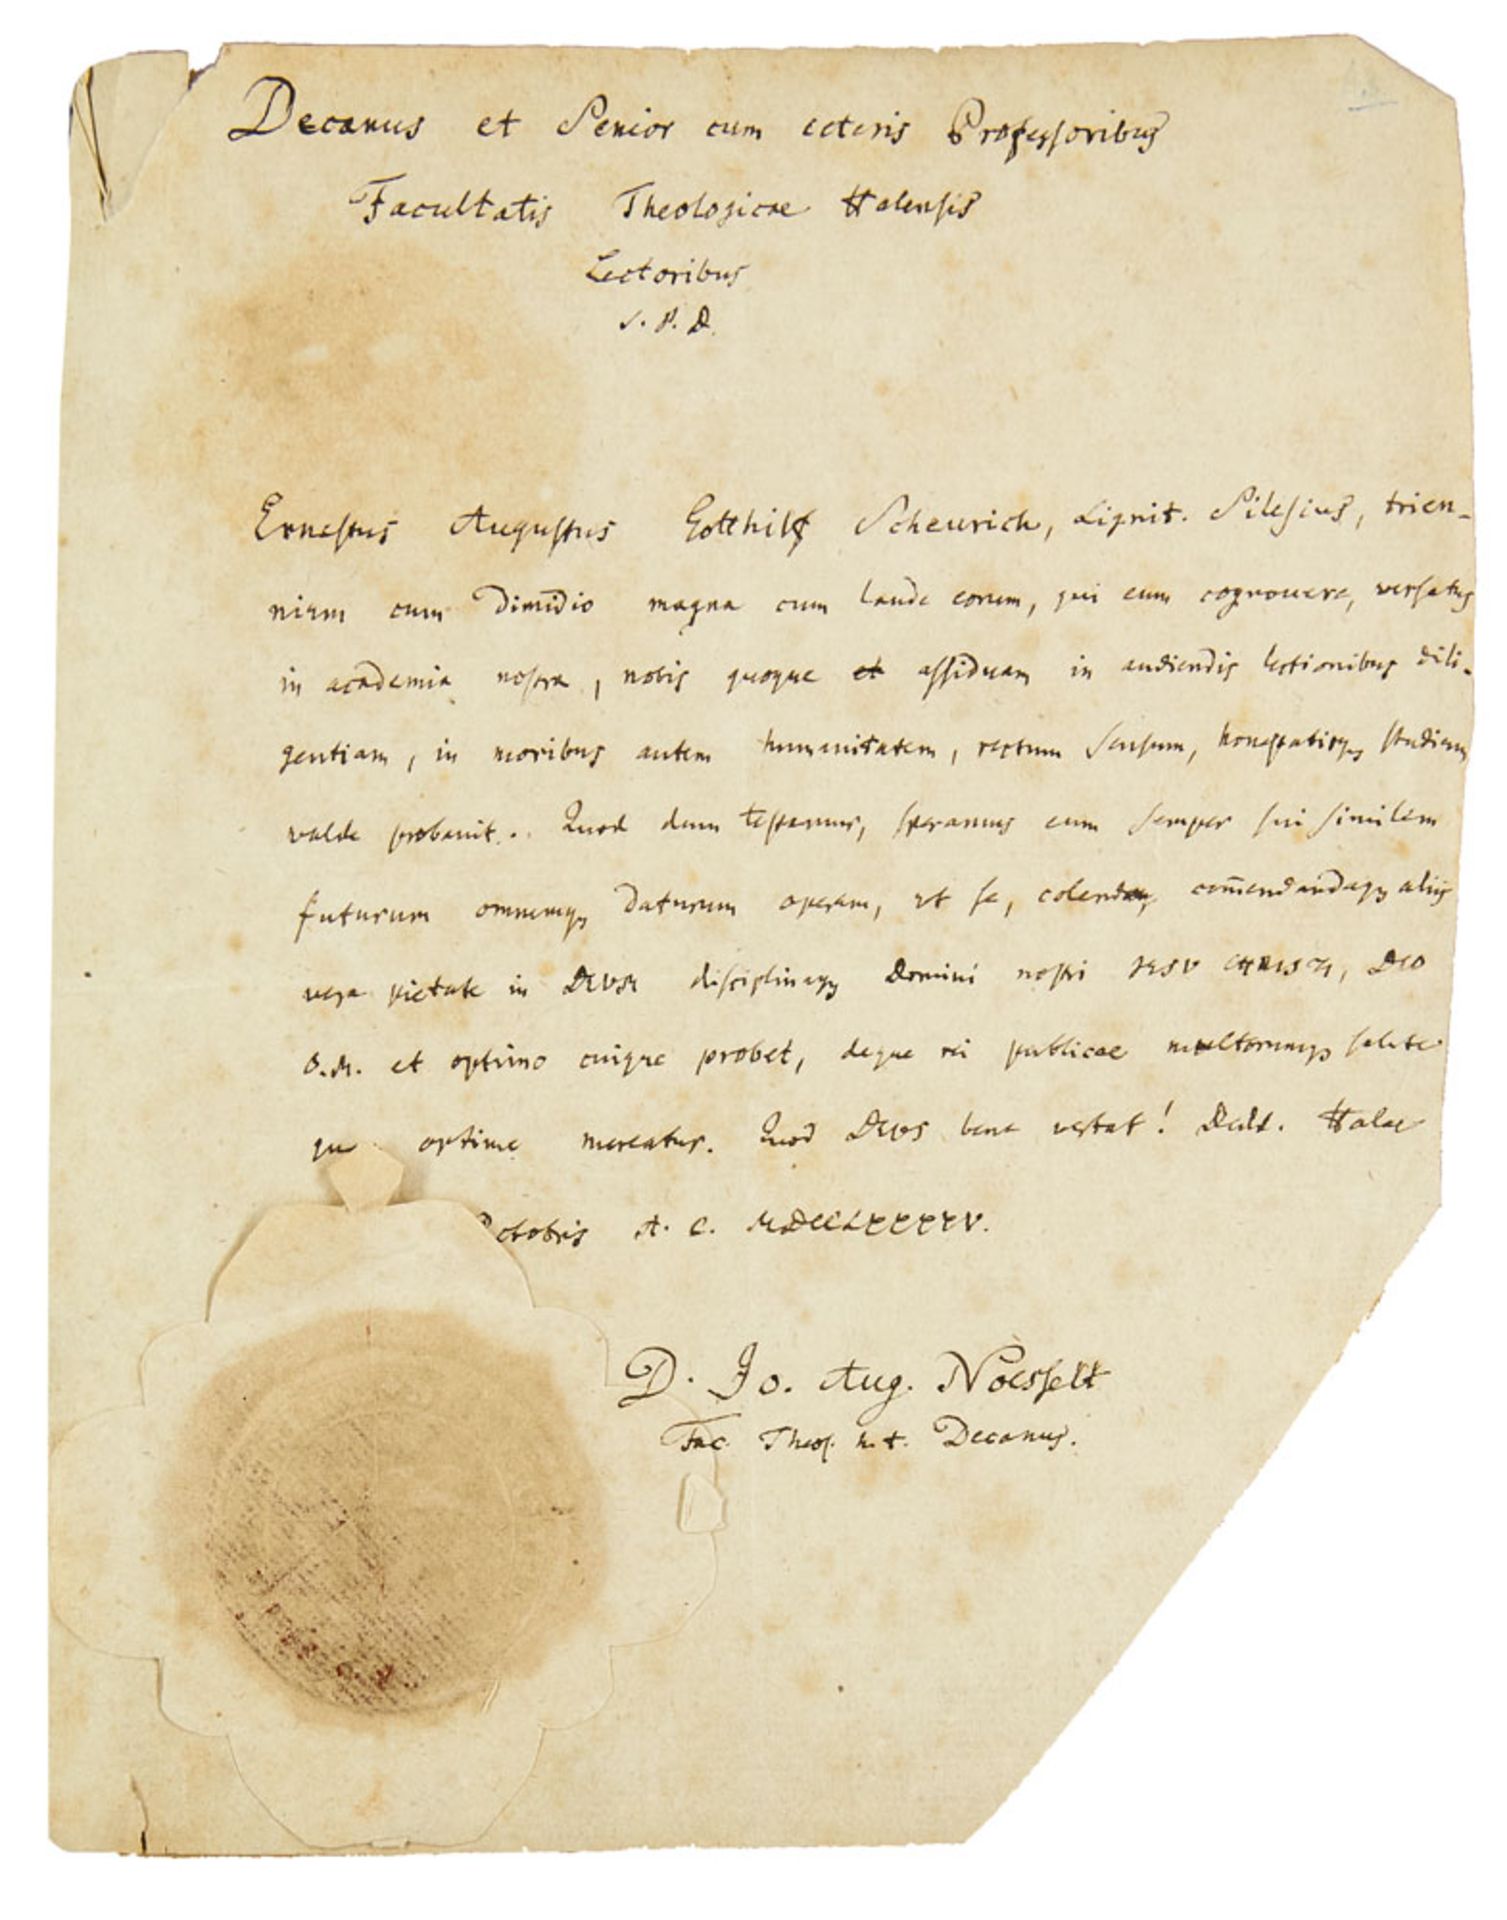 Decanus et Senior cum ceteris Professoribus
Facultatis Theologicae Halensis
Lectoribus
S. P. D.
Ernestus Augustus Gotthilf Scheurich, Lignit. Silesius, trien-
nium cum dimidio magna cum laude eorum, qui eum cognouere, versatus
in academia nostra, nobis quoque et assiduam in audiendis lectionibus dili-
gentiam, in moribus autem humanitatem, rectum sensum, honestatisq; studium
valde probauit. Quod dum testamur, speramus eum semper sui similem
futurum omnemq; daturum operam, ut se, com̄endandaq; aliis
vera pietate in DEVM disciplinaq; Domini nostri IESV CHRISTI, DEO
O. M. et optimo cuique probet, deque rei publicae multorumq; salute
optime mereatur. Quod DEVS bene vertat! Dedd. Halae
Octobris A. C. MDCCLXXXXV.
D. Jo. Aug. Noesselt
Fac. Theol. h. t. Decanus.